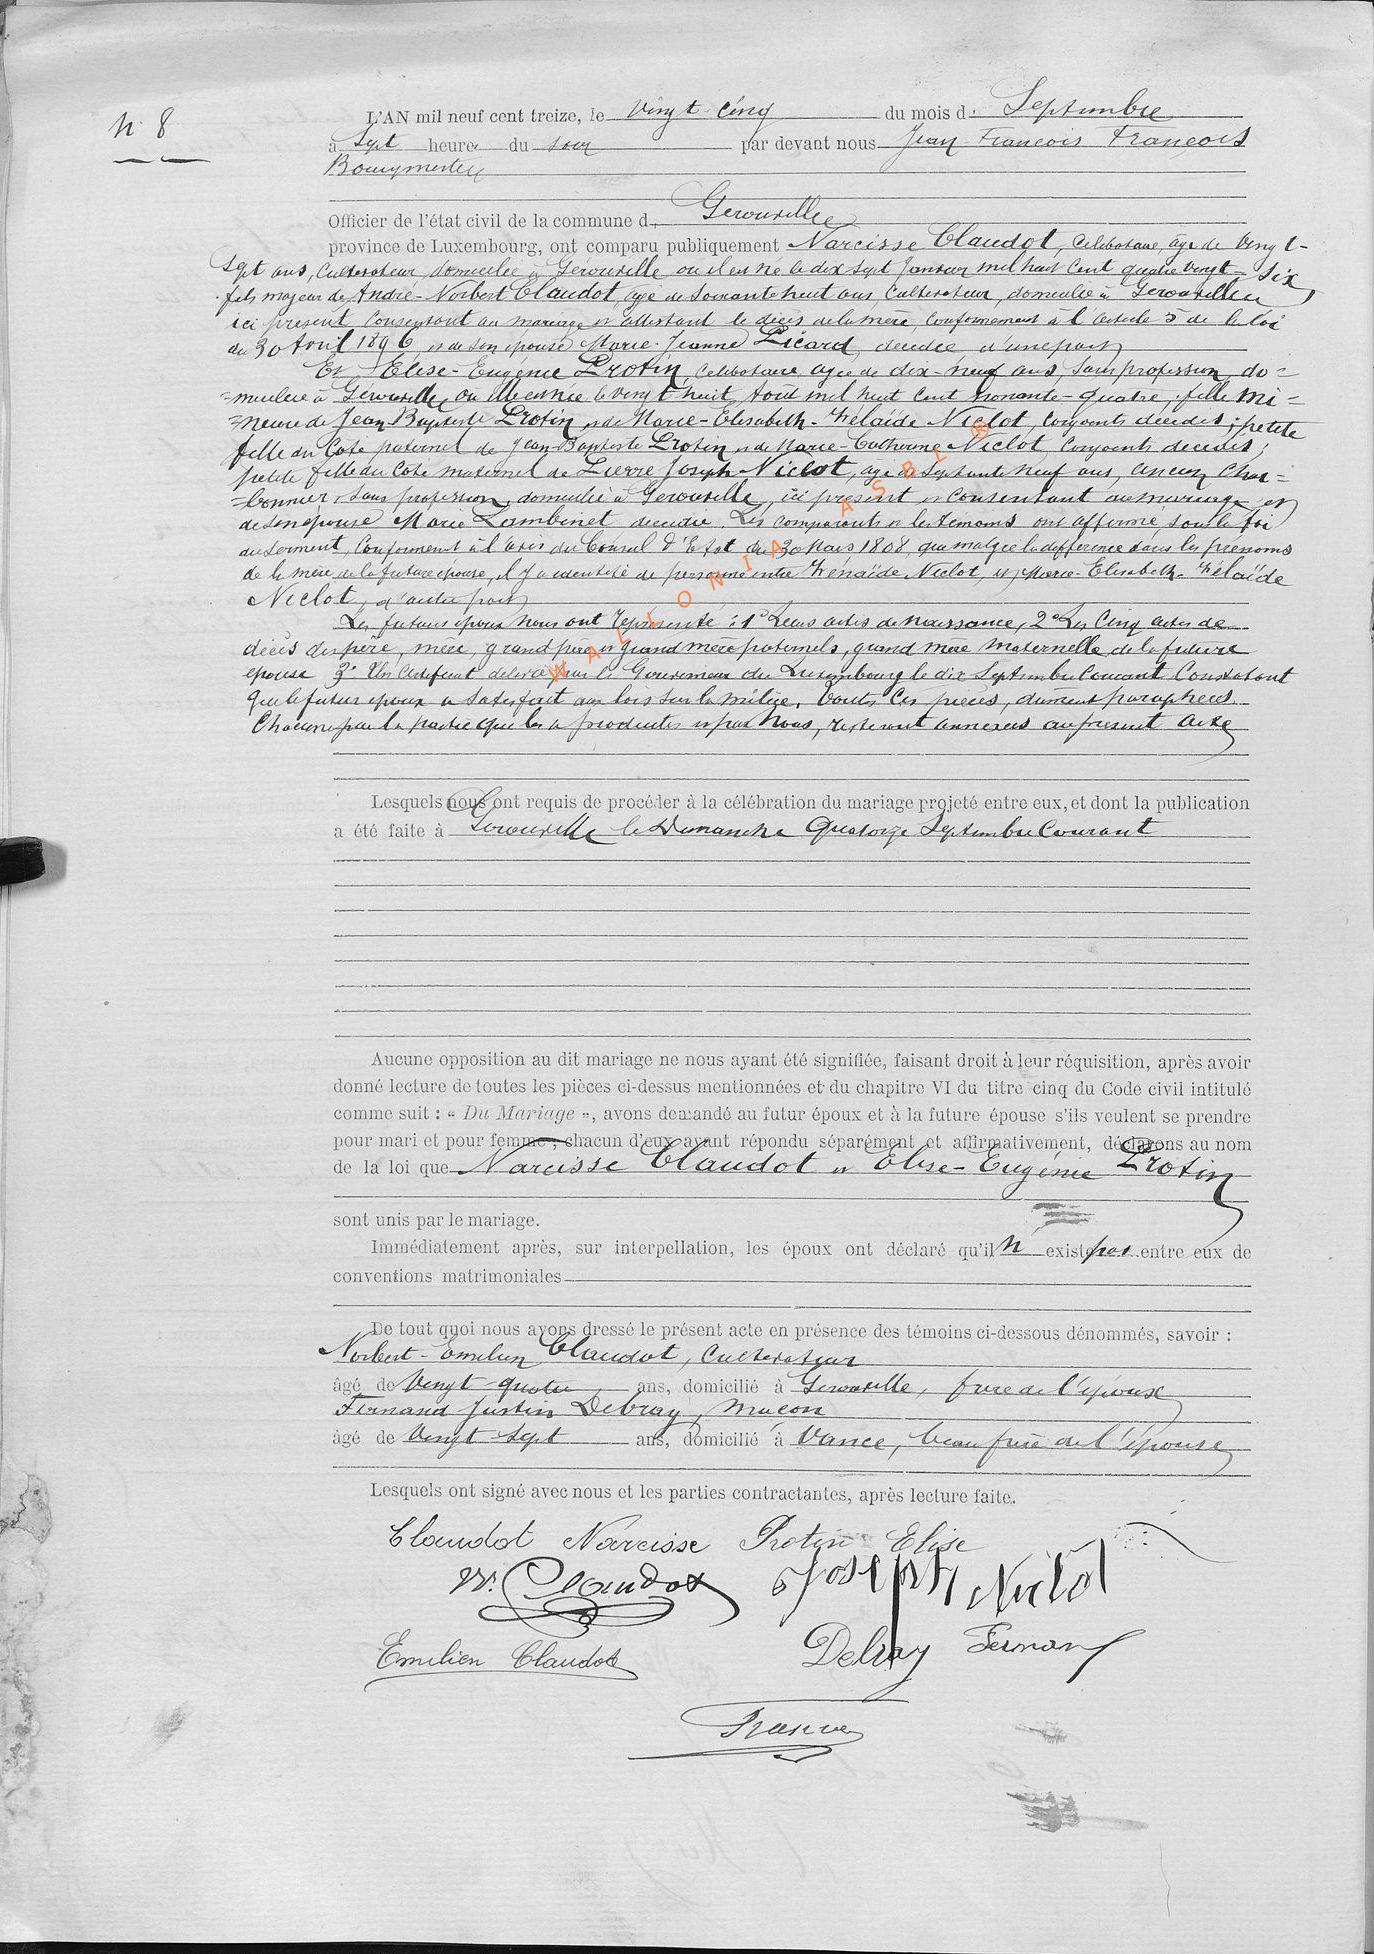 N. 8
L'AN mil neuf cent treize, le vingt-cinq du mois d. Septembre
à Sept heure. du soir par devant nous Jean François François
Bourgmestre
Officier de l'état civil de la commune d. Gerouville
province de Luxembourg, ont comparu publiquement Narcisse Claudot, Celibataire, âgé de Vingt-
Sept ans, Cultivateur, domicilié à Gerouville où il est né le dix sept Janvier mil huit Cent quatre vingt-six,
fils majeur de André-Norbert Claudot, âgé de Soixante huit ans, Cultivateur, domicilié à Gerouville
ici présent Consentant au mariage et attestant le décès de la mère, Conformément à l'article 5 de la loi
du 30 Avril 1896, et de son épouse Marie-Jeanne Picard, décédée, d'une part
Et Elise-Eugénie Protin, Celibataire agée de dix-neuf ans, Sans profession, do=
=miciliée à Gérouville, où elle est née le vingt huit Août mil huit Cent nonante-quatre, fille mi=
=neure de Jean Baptiste Protin et de Marie-Elisabeth-Zélaïde Niclot, Conjoints décédés; petite
fille du Coté paternel de Jean-Baptiste Protin et de Marie-Catherine Niclot Conjoints décédés;
petite fille du Coté maternel de Pierre Joseph Niclot, âgé de Septante neuf ans, ancien Char=
=bonnier, Sans profession, domicilié à Gerouville, ici présent et Consentant au mariage et
de son épouse Marie Lambinet décédée. Les Comparants et les témoins ont affirmé, sous la foi
du Serment, Conformément à l'avis du Conseil d'Etat du 30 Mars 1808, que malgré la différence dans les prénoms
de la mère de la future épouse, il y a identité de personne entre Zénaïde Niclot, et Marie-Elisabeth-Zélaïde
Niclot, d'autre part
Les futurs époux nous ont représenté: 1° Leurs actes de naissance, 2° Les Cinq actes de
décès des père, mère, grand père et grand mère paternels, grand mère maternelle de la future
épouse 3° Un Certificat délivré par le Gouverneur du Luxembourg le dix Septembre Courant Constatant
que le futur époux a Satisfait aux lois sur la milice. Toutes Ces pièces, dûment paraphées
Chacune par la partie qui les a produites et par Nous, resteront annexées au présent acte
WALLONIA ASBL ®
Lesquels nous ont requis de procéder à la célébration du mariage projeté entre eux, et dont la publication
a été faite à Gerouville le Dimanche Quatorze Septembre Courant
Aucune opposition au dit mariage ne nous ayant été signifiée, faisant droit à leur réquisition, après avoir
donné lecture de toutes les pièces ci-dessus mentionnées et du chapitre VI du titre cinq du Code civil intitulé
comme suit : « Du Mariage », avons demandé au futur époux et à la future épouse s'ils veulent se prendre
pour mari et pour femme ; chacun d'eux ayant répondu séparément et affirmativement, déclarons au nom
de la loi que Narcisse Claudot et Elise-Eugénie Protin
sont unis par le mariage.
Immédiatement après, sur interpellation, les époux ont déclaré qu'il n' existe pas entre eux de
conventions matrimoniales
De tout quoi nous avons dressé le présent acte en présence des témoins ci-dessous dénommés, savoir :
Norbert-Emilien Claudot, Cultivateur
âgé de Vingt quatre ans, domicilié à Gerouville, frère de l'époux
Fernand Justin Debray, maçon
âgé de Vingt Sept ans, domicilié à Vance, beau frère de l'épouse
Lesquels ont signé avec nous et les parties contractantes, après lecture faite.
Claudot Narcisse Protin Elise
N. Claudot Joseph Niclot
Emilien Claudot Debray Fernand
François